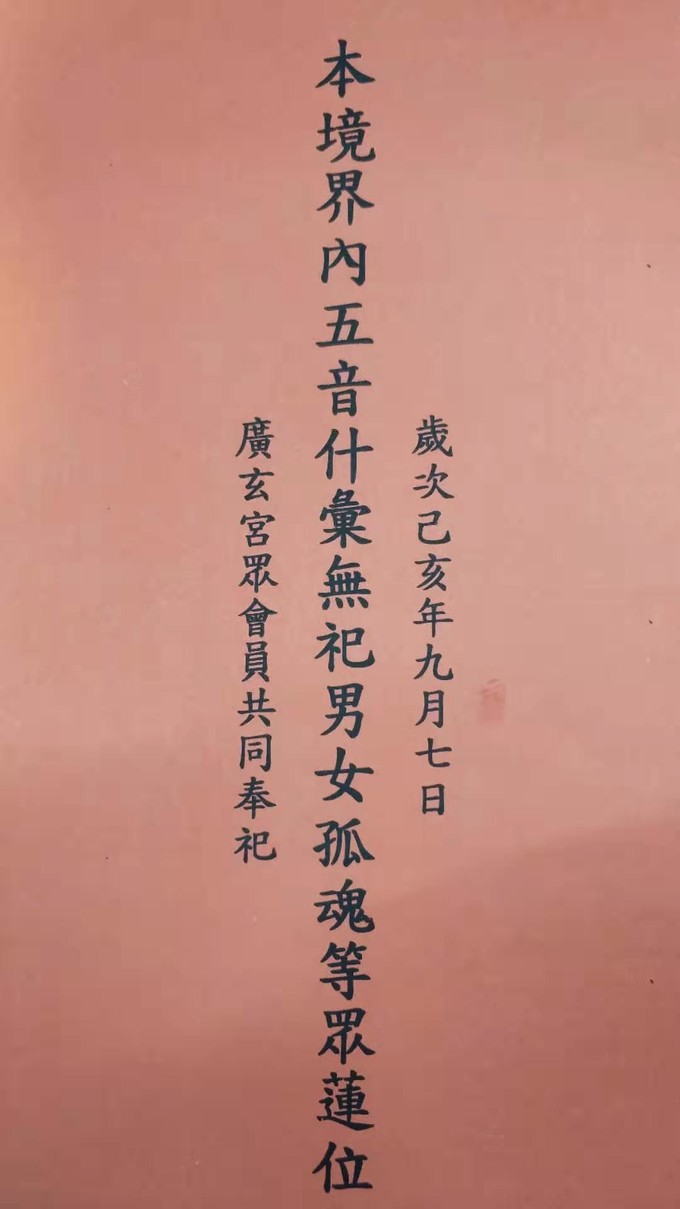 歲次己亥年九月七日
本境界內五音什彙無祀男女孤魂等眾蓮位
廣玄宮眾會員共同奉祀